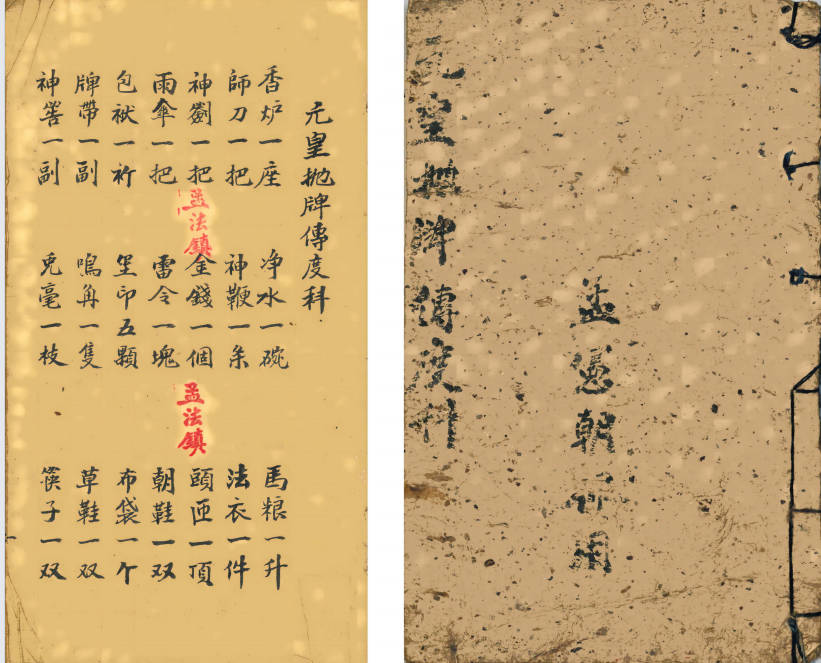 元皇抛牌傳度科
香炉一座 净水一碗 馬粮一升
師刀一把 神鞭一条 法衣一件
神劍一把 金錢一個 頭匝一頂
雨傘一把 雷令一塊 朝鞋一双
包袱一祈 印五顆 布袋一个
牌帶一副 鳴角一隻 草鞋一双
神筶一副 兎毫一枝 筷子一双
孟法鎮
孟法鎮
孟朝用
元皇抛牌傳度科